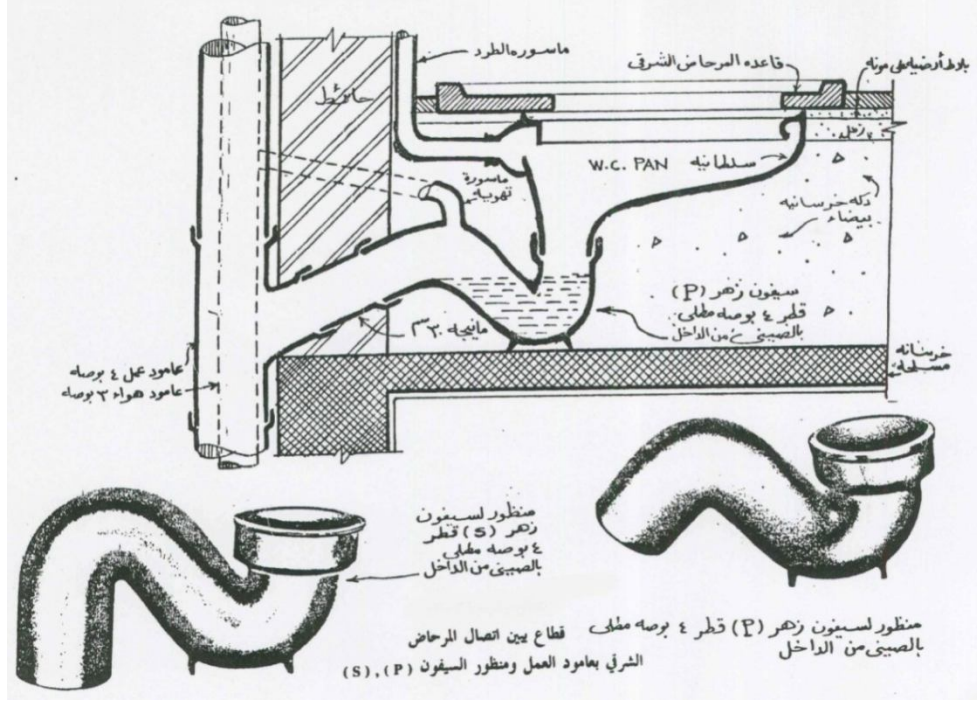 ماسورة الطرد
قاعده المرحاض الشرقى
حائط
سلطانيه W.C. PAN
ماسورة
تهوية
دكه خرسانيه
بيضاء
سيفون زهر (P)
قطر ٤ بوصه مطلى
بالصينى من الداخل
خرسانه
مسلحه
عامود عمل ٤ بوصه
عامود هواء ٣ بوصه
منظور لسيفون
زهر (S) قطر
٤ بوصه مطلى
بالصينى من الداخل
منظور لسيفون زهر (P) قطر ٤ بوصه مطلى
بالصينى من الداخل
قطاع يبين اتصال المرحاض
الشرقي بعامود العمل ومنظور السيفون (P) , (S)